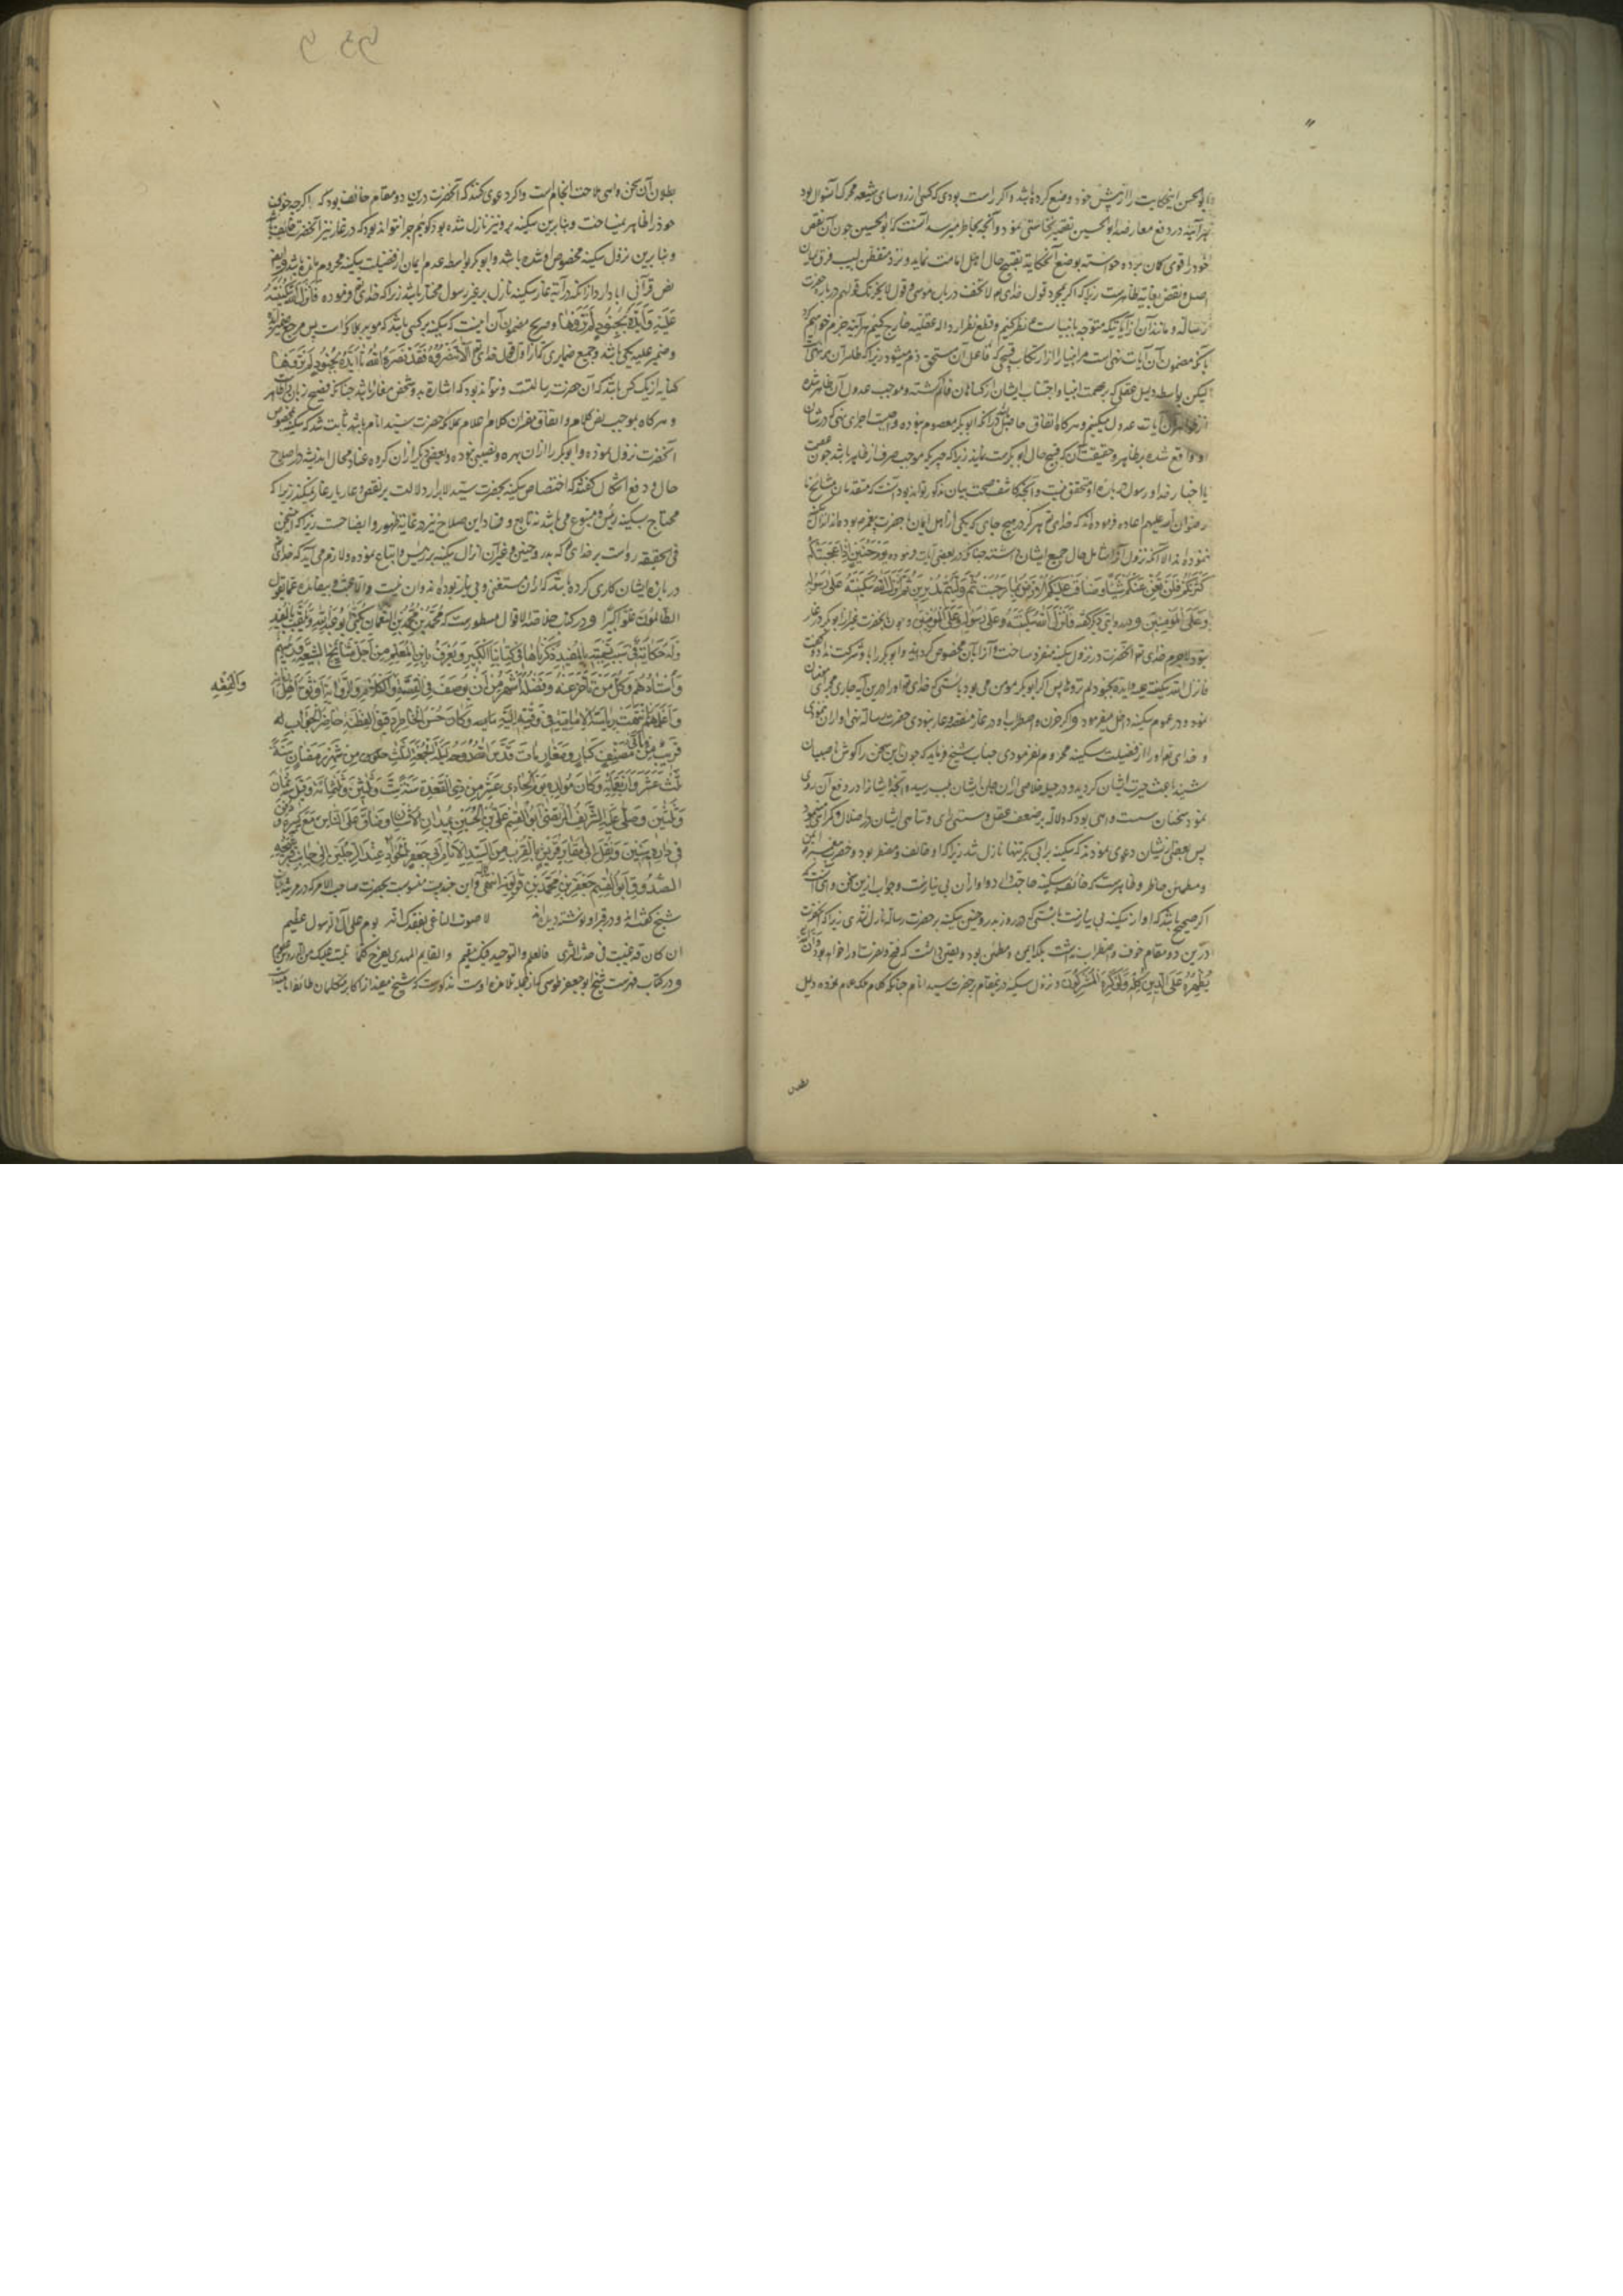 ابوالحسن اینحکایت را از پیش خود وضع کرده باشد و اگر راست بودی که کسی از روسای شیعه محرک آن سوال بود
هر آینه در دفع معارضه ابوالحسین تقصیر نخاستی نمود و آنچه بخاطر میرسد آنست که ابوالحسین چون آن نقض
خود را قوی کمان برده خواسته بوضع آنحکایة تقبیح حال اهل امامت نماید و نزد متفطن لبیب فرق میان
اصل و نقض بغایة ظاهرست زیرا که اگر بمجرد قول خدای لا تخف در باب موسی و قول لا یحزنک قولهم در باره حضرت
رسالة و مانند آن از آیاتیکه متوجه بانبیاست نظر کنیم و قطع نظر از دلاله عقلیه خارج کنیم هر آینه جزم خواهیم کرد
بآنکه مضمون آن آیات نهی است مر انبیا را از ارتکاب قبیحی که فاعل آن مستحق ذم میشود زیرا که
لیکن بواسطه دلیل عقلی که بر عصمت انبیا و اجتناب ایشان از کناهان قایم کشته و موجب عدول از ظاهر شده
از ظاهر آن آیات عدول میکنیم و هر کاه اتفاق حاصل باشد بر آنکه ابوبکر معصوم نبوده واجبست اجرای نهی که در شان
او واقع شده بر ظاهر و حقیقت آن که قبح حال ابوبکرست
یا اخبار خدا و رسول در باره او متحقق نیست و آنچه کاشف صحت بیان مذکور تواند بود آنست که متقدمان مشایخ ما
رضوان الله علیهم اعاده فرموده‌اند که خدای هرکز در هیچ جای که یکی از اهل ایمان با حضرت پیغمبر بوده
ننموده‌اند الا آنکه نزول آنرا شامل حال جمیع ایشان داشته چنانکه در بعضی آیات فرموده وَیَوْمَ حُنَیْنٍ اِذْ اَعْجَبَتْکُمْ
کَثْرَتُکُمْ فَلَنْ تُغْنِ عَنْکُمْ شَیْئًا وَضَاقَتْ عَلَیْکُمُ الْاَرْضُ بِمَا رَحُبَتْ ثُمَّ وَلَّیْتُمْ مُدْبِرِینَ ثُمَّ اَنْزَلَ اللهُ سَکِینَتَهُ عَلَی رَسُولِهِ
وَعَلَی الْمُؤْمِنِینَ و در آیتی دیکر کفته فَاَنْزَلَ اللهُ سَکِینَتَهُ عَلَی رَسُولِهِ وَعَلَی الْمُؤْمِنِینَ و چون با حضرت غیر از ابوبکر در غار
نبود لاجرم خدای تعالی آنحضرت را در نزول سکینه منفرد ساخت و آنرا بآن مخصوص کردانید و ابوبکر را با او شرکت نداد و کفت
فانزل الله سکینته علیه و ایده بجنود لم تروها پس اکر ابوبکر مومن می بود بایستی که خدای تعالی او را درین آیه جاری مجرای
نمود و در عموم سکینه داخل میفرمود و اکر حزن و اضطراب او در غار منقصه و عار نبودی حضرت رسالة نهی او از آن ننمودی
و خدای تعالی او را از فضیلت سکینه محروم نفرمودی جناب شیخ فرماید که چون این سخن را کوش ناصبیان
شنید باعث حیرت ایشان کردید و در حیله خلاصی از آن جان ایشان بلب رسیده آنچه ایشانرا در دفع آن روی
نمود سخنان سست واهی بود که دلالة بر ضعف عقل و سستی رای و تناهی ایشان در ضلال و کمراهی مینمود
پس بعضی از ایشان دعوی نمودند که سکینه بر ابی بکر تنها نازل شد زیرا که او خائف و مضطر بود و حضرت پیغمبر ایمن
و مطمئن خاطر و ظاهرست که خائف بسکینه حاجت دارد و او از آن بی نیازست و جواب از این سخن واهی آنست که
اکر صحیح باشد که او از سکینه بی نیازست بایستی که در روز بدر و حنین سکینه بر حضرت رسالة نازل نشدی زیرا که آنحضرت
درین دو مقام خوف و اضطراب نداشت بلکه ایمن و مطمئن بود و بیقین دانست که فتح و نصرت او را خواهد بود و ان الله
یُظْهِرُهُ عَلَی الدِّینِ کُلِّهِ وَلَوْ کَرِهَ الْمُشْرِکُونَ و نزول سکینه در ینمقام بر حضرت سید انام چنانکه کلام ملک علام نموده دلیل
بطلان
بطلان آن سخن واهی صاحت انجام است و اکر دعوی کنند که آنحضرت درین دو مقام خائف بود که اکرچه خوف
خود را ظاهر نمیساخت و بنا برین سکینه برو نیز نازل شده بود کوییم چرا نتواند بود که در غار نیز آنحضرت خائف باشد
و بنا برین نزول سکینه مخصوص او شده باشد و ابوبکر بواسطه عدم ایمان از فضیلت سکینه محروم مانده باشد
نص قرآنی ابا دارد از آنکه در آیه غار سکینه نازل بر غیر رسول مختار باشد زیرا که خدای تعالی فرموده فَاَنْزَلَ اللهُ سَکِینَتَهُ
عَلَیْهِ وَاَیَّدَهُ بِجُنُودٍ لَمْ تَرَوْهَا و صریح مضمون آن اینست که سکینه بر کسی باشد که موید بملائکه است پس مرجع ضمیر ایده
و ضمیر علیه یکی باشد و جمیع ضمایری که از اول قول خدای تعالی اِلَّا تَنْصُرُوهُ فَقَدْ نَصَرَهُ اللهُ تا اَیَّدَهُ بِجُنُودٍ لَمْ تَرَوْهَا
کنایه از یک کس باشد که آن حضرت رسالتست و نتواند بود که اشارة بدو شخص مغایر باشد چنانکه فصیح زبان
و هر کاه بموجب نص کلام و اتفاق مفسران کلام ملک علام مؤید بملائکه حضرت سید انام باشد ثابت شد که سکینه مخصوص
آنحضرت نزول نموده و ابوبکر را از آن بهره و نصیبی نبوده و بعضی دیکر از آن کروه عناد محال اندیشه در اصلاح
حال و دفع اشکال کفته‌اند که اختصاص سکینه بحضرت سید الابرار دلالت بر نقص و عار یار غار نمیکند زیرا که
محتاج بسکینه رئیس و متبوع می باشد نه تابع و فساد این صلاح نیز در غایة ظهور و ایضاحست زیرا که این سخن
فی الحقیقه ردست بر خدای تعالی که در بدر و حنین و غیر آن انزال سکینه بر رئیس و اتباع نموده و لازم می آید که خدای تعالی
در باره ایشان کاری کرده باشد که از آن مستغنی و بی نیاز بوده‌اند و آن عبث و بیفایده عما یقول
الظَّالِمُونَ عُلُوًّا کَبِیرًا و در کتاب خلاصة الاقوال مسطورست که مُحَمَّدُ بْنُ مُحَمَّدِ بْنِ النُّعْمَانِ یُکَنَّی اَبُو عَبْدِ اللهِ وَیُلَقَّبُ بِالْمُفِیدِ
وَلَهُ حِکَایَةٌ فِی سَبَبِ تَسْمِیَتِهِ بِالْمُفِیدِ ذَکَرْنَاهَا فِی کِتَابِنَا الْکَبِیرِ وَیُعْرَفُ بِابْنِ الْمُعَلِّمِ مِنْ اَجَلِّ مَشَایِخِ الشِّیعَةِ وَرَئِیسُهُمْ
وَاُسْتَادُهُمْ وَکُلُّ مَنْ تَاَخَّرَ عَنْهُ وَفَضْلُهُ اَشْهَرُ مِنْ اَنْ یُوصَفَ فِی الْفِقْهِ وَالْکَلَامِ وَالرِّوَایَةِ اَوْثَقُ اَهْلِ زَمَانِهِ
وَالْفِقْهِ
وَاَعْلَمُهُمْ اِنْتَهَتْ رِیَاسَةُ الْاِمَامِیَّةِ فِی وَقْتِهِ اِلَیْهِ وَکَانَ حَسَنَ الْخَاطِرِ دَقِیقَ الْفِطْنَةِ حَاضِرَ الْجَوَابِ لَهُ
قَرِیبٌ مِنْ مِائَتَیْ مُصَنَّفٍ کِبَارٍ وَصِغَارٍ مَاتَ قَدَّسَ اللهُ رُوحَهُ لَیْلَةَ الْجُمُعَةِ لِثَلَاثٍ خَلَوْنَ مِنْ شَهْرِ رَمَضَانَ سَنَةَ
ثَلَثَ عَشَرَ وَاَرْبَعَمِائَةٍ وَکَانَ مَوْلِدُهُ یَوْمَ الْحَادِی عَشَرَ مِنْ ذِی الْقَعْدَةِ سَنَةَ سِتٍّ وَثَلَثِینَ وَثَلَثِمِائَةٍ وَقِیلَ ثَمَانَ
وَثَلَثِینَ وَصَلَّی عَلَیْهِ الشَّرِیفُ الْمُرْتَضَی اَبُو الْقَسِمِ عَلِیُّ بْنُ الْحُسَیْنِ بِمَیْدَانِ الْاُشْنَانِ وَضَاقَ عَلَی النَّاسِ مَعَ کِبَرِهِ وَدُفِنَ
فِی دَارِهِ سِنِینَ وَنُقِلَ اِلَی مَقَابِرِ قُرَیْشٍ بِالْقُرْبِ مِنَ السَّیِّدِ الْاِمَامِ اَبِی جَعْفَرٍ الْجَوَادِ عِنْدَ الرِّجْلَیْنِ اِلَی جَانِبِ قَبْرِ شَیْخِهِ
الصَّدُوقِ اَبِی الْقَسِمِ جَعْفَرِ بْنِ مُحَمَّدِ بْنِ قُولَوَیْهِ انتهی و این چند بیت منسوبست بحضرت صاحب الامر که در مرثیه جناب
شیخ کفته‌اند و در قبر او نوشته دیده‌اند لا صوت الناعی بفقدک انه یوم علی آل الرسول عظیم
ان کان قد غیبت فی جدث الثری فالعلم والتوحید فیک مقیم والقایم المهدی یفرح کلما تلیت علیک من الدروس علوم
و در کتاب فهرست شیخ ابو جعفر طوسی که از جمله تلامذه اوست مذکورست که شیخ مفید از اکابر متکلمان طائفه امامیست